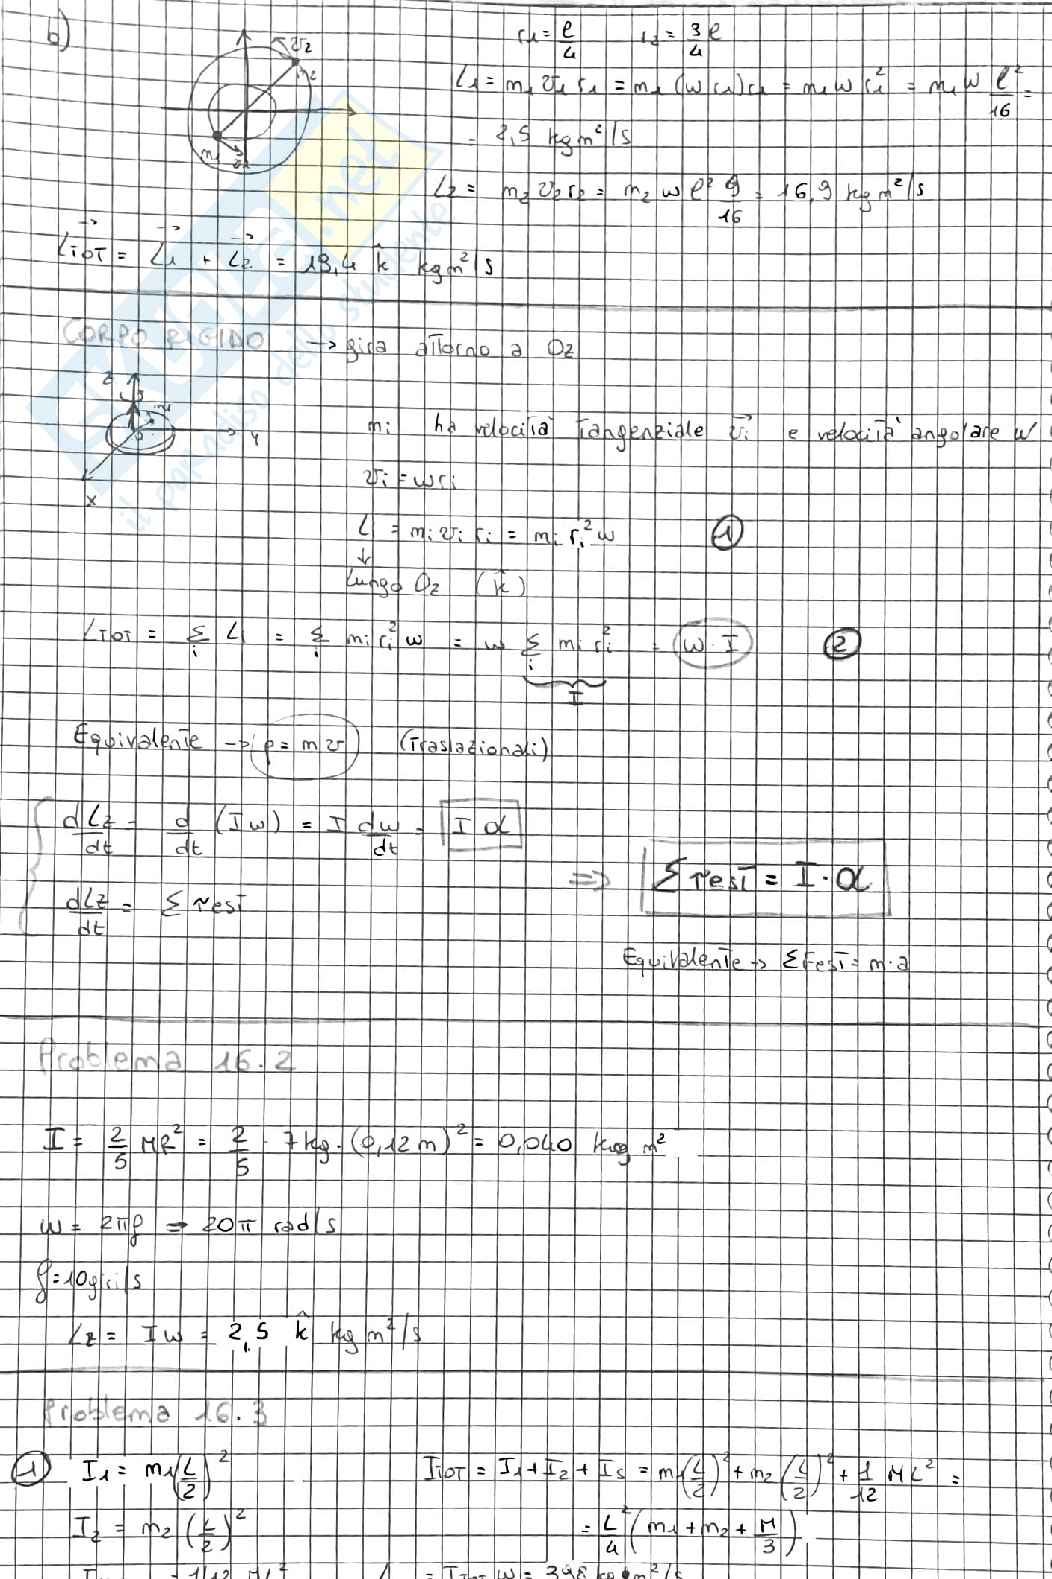 b)
r₁ = l/4   r₂ = 3/4 l
L₁ = m₁ v₁ r₁ = m₁ (w r₁) r₁ = m₁ w r₁² = m₁ w l²/16 =
= 2,5 kg m²/s
L₂ = m₂ v₂ r₂ = m₂ w l² 9/16 = 16,9 kg m²/s
L⃗TOT = L⃗₁ + L⃗₂ = 19,4 k̂ kg m²/s
CORPO RIGIDO → gira attorno a Oz
z
y
x
mi ha velocità tangenziale v⃗i e velocità angolare w
vi = w ri
L = mi vi ri = mi ri² w   ①
↓
Lungo Oz (k̂)
LTOT = Σi Li = Σi mi ri² w = w Σi mi ri² = w · I   ②
I
Equivalente → p = m v (Traslazionali)
dLz/dt = d/dt (I w) = I dw/dt = I α
⇒ Σ τest = I · α
dLz/dt = Σ τest
Equivalente → ΣFest = m · a
Problema 16.2
I = 2/5 MR² = 2/5 · 7 kg · (0,12 m)² = 0,040 kg m²
w = 2πf ⇒ 20π rad/s
f = 10 giri/s
Lz = I w = 2,5 k̂ kg m²/s
Problema 16.3
① I₁ = m₁ (L/2)²   ITOT = I₁ + I₂ + Is = m₁ (L/2)² + m₂ (L/2)² + 1/12 M L² =
I₂ = m₂ (L/2)²   = L²/4 (m₁ + m₂ + M/3)
il paradiso dello studente